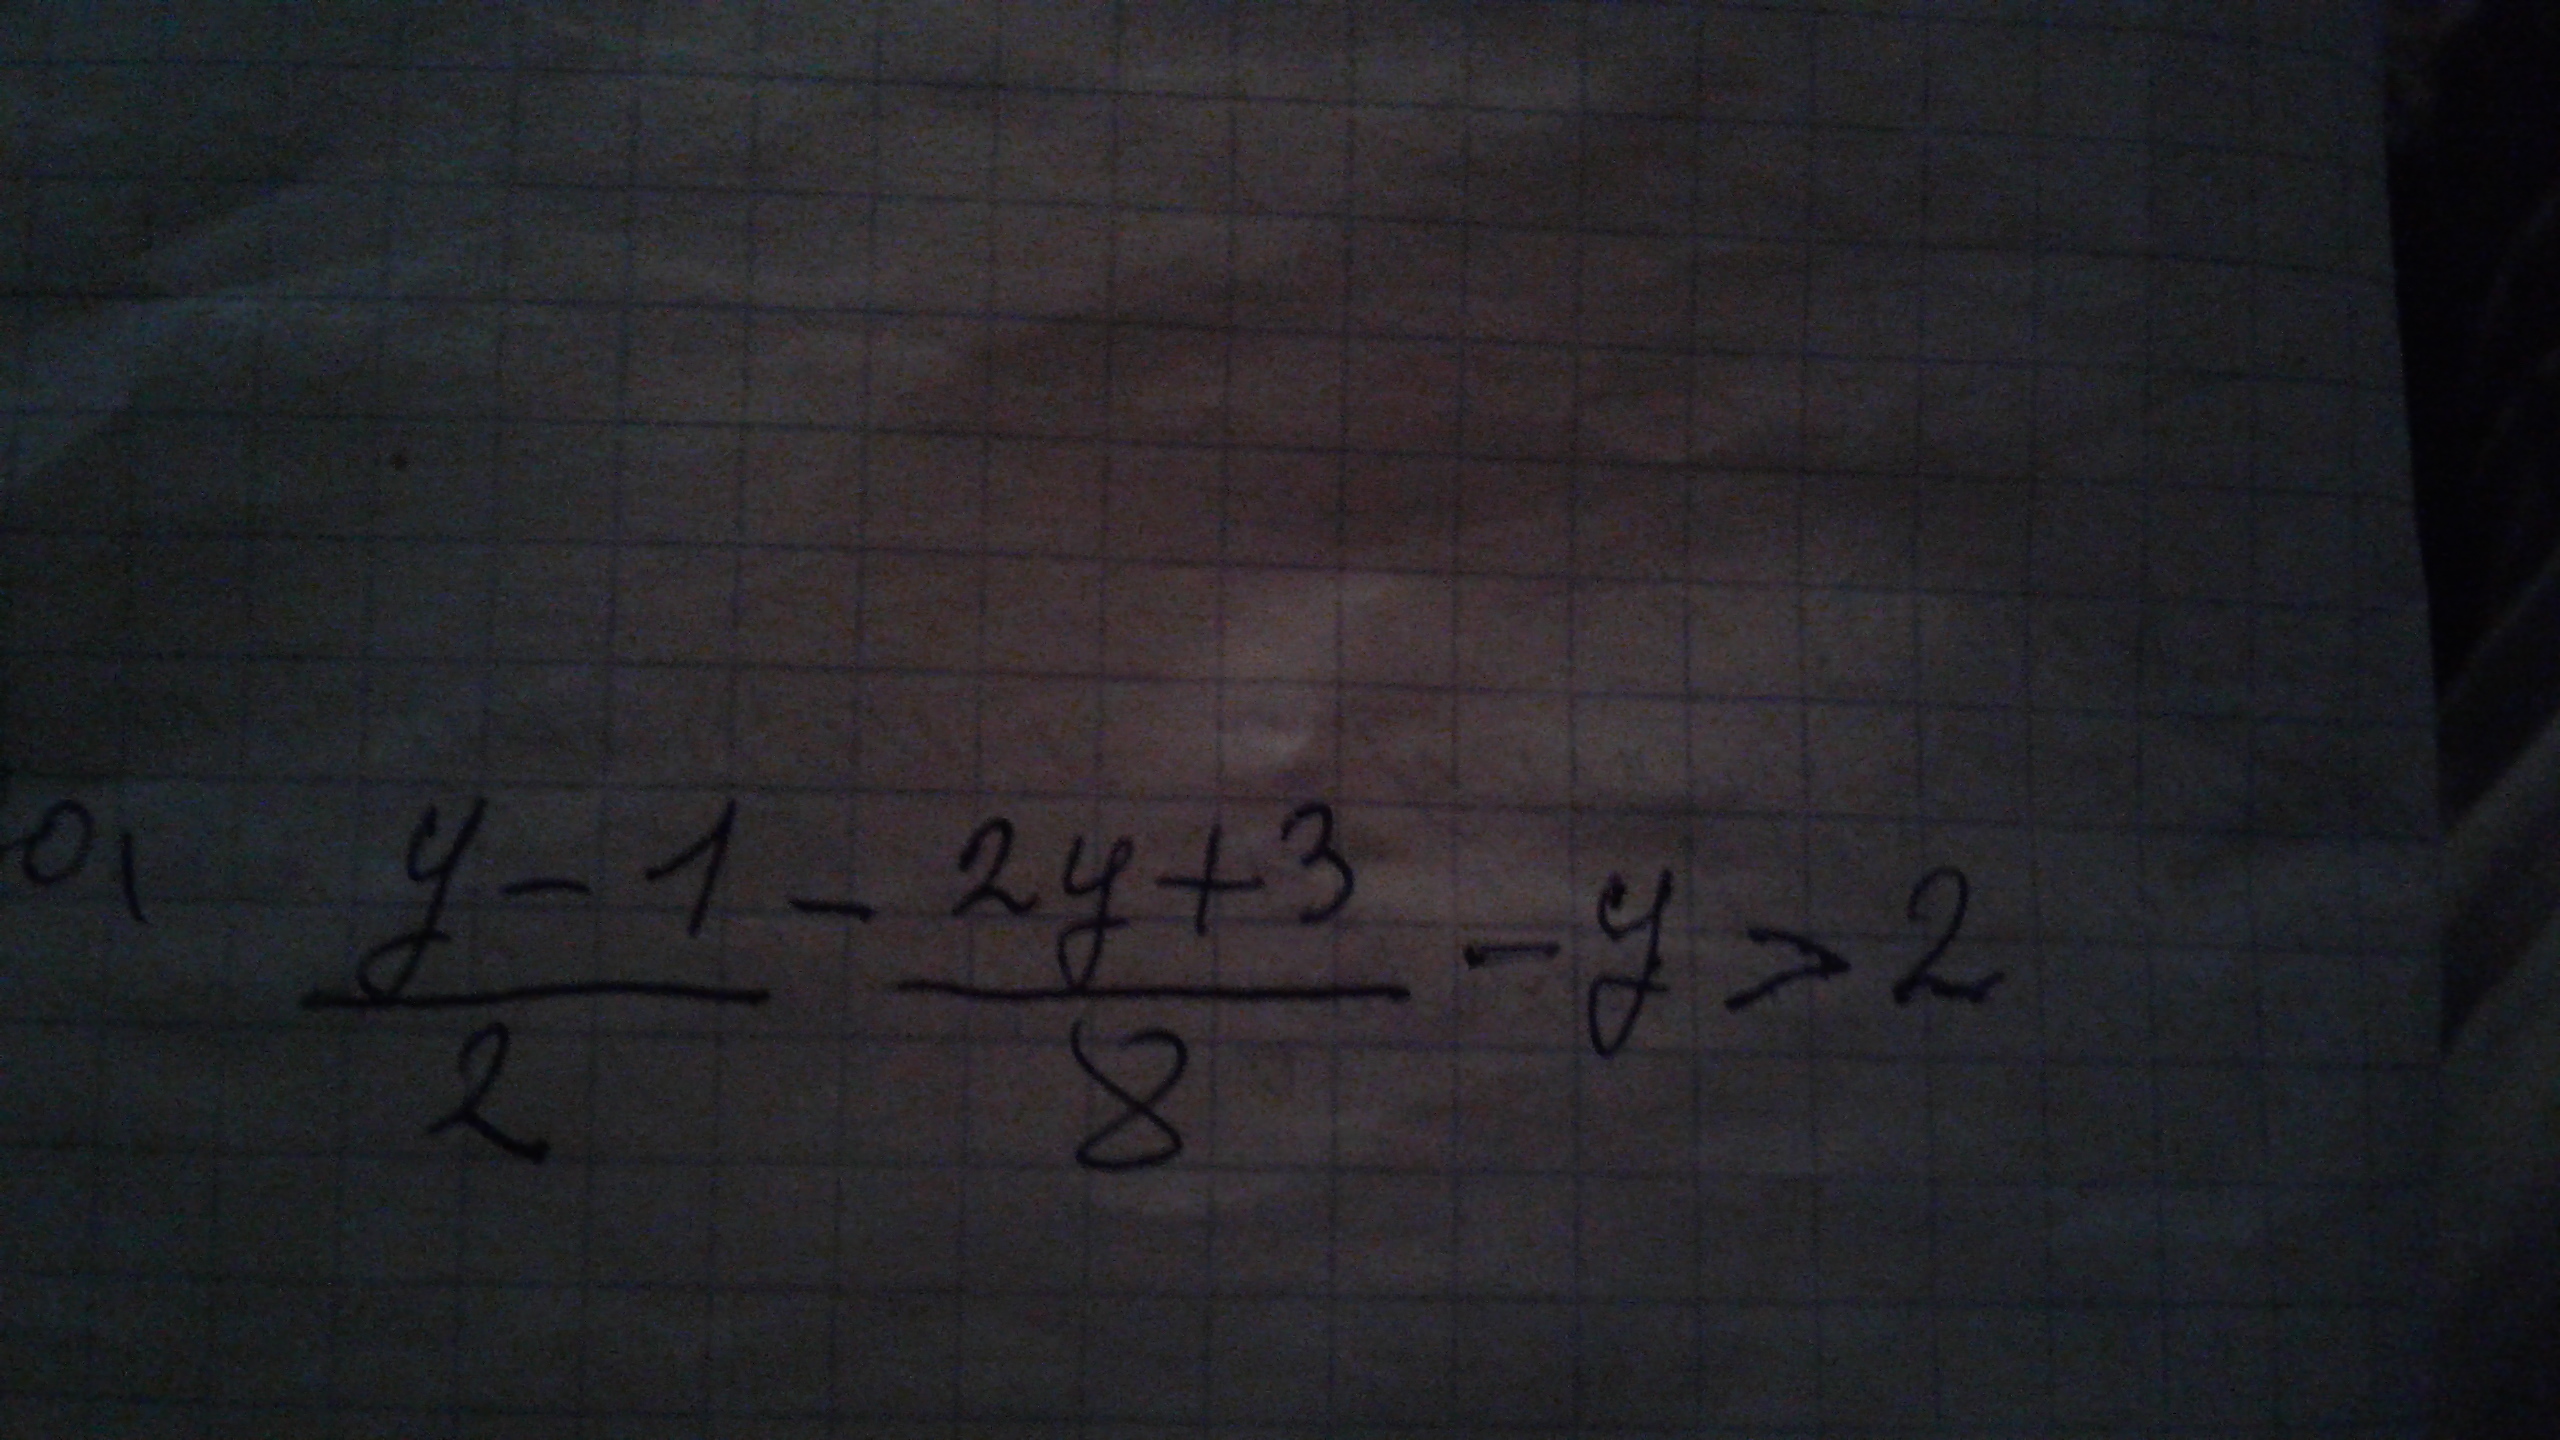 (y - 1)/2 - (2y + 3)/8 - y > 2